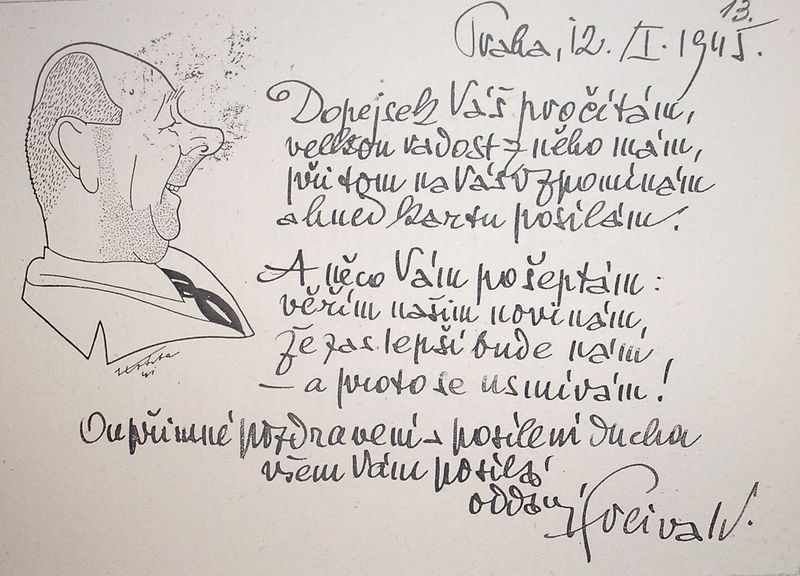 13.
Praha, 12./I. 1945.
Dopejsek Váš pročítám,
velkou radost z něho mám,
při tom na Vás vzpomínám
a hned kartu posílám.
A něco Vám pošeptám:
věřím našim novinám,
že zas lepší bude nám,
– a proto se usmívám!
Oupřímné pozdravení a posílení ducha
všem Vám posílá
oddaný